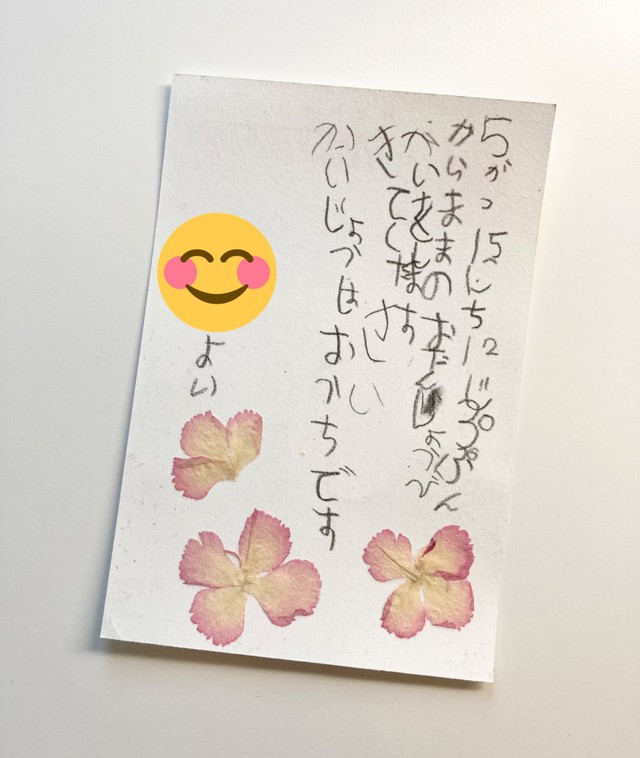 5がつ15にち12じ
からままのおたんじょうび
かいをします
きて
かいじょうはおうちです
より